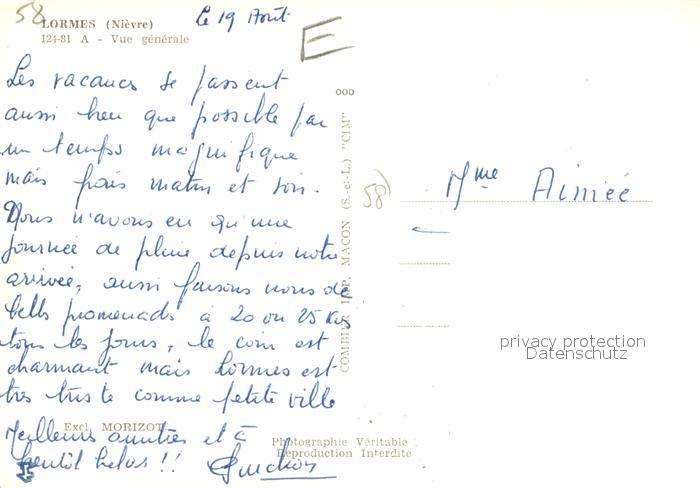 58
Le 19 Août
LORMES (Nièvre)
124-81 A - Vue générale
E
Les vacances se passent
aussi bien que possible par
un temps magnifique
mais frais matin et soir.
Nous n'avons eu qu'une
journée de pluie depuis notre
arrivée, aussi faisons nous de
belles promenades à 20 ou 25 Kms
tous les jours, le coin est
charmant mais Lormes est
très triste comme petite ville
Meilleurs amitiés et à
bientôt
Excl. MORIZOT
ooo
COMBIER IMP. MACON (S.-et-L.) "CIM"
Photographie Véritable
Reproduction Interdite
58)
Mme Aimée
privacy protection
Datenschutz